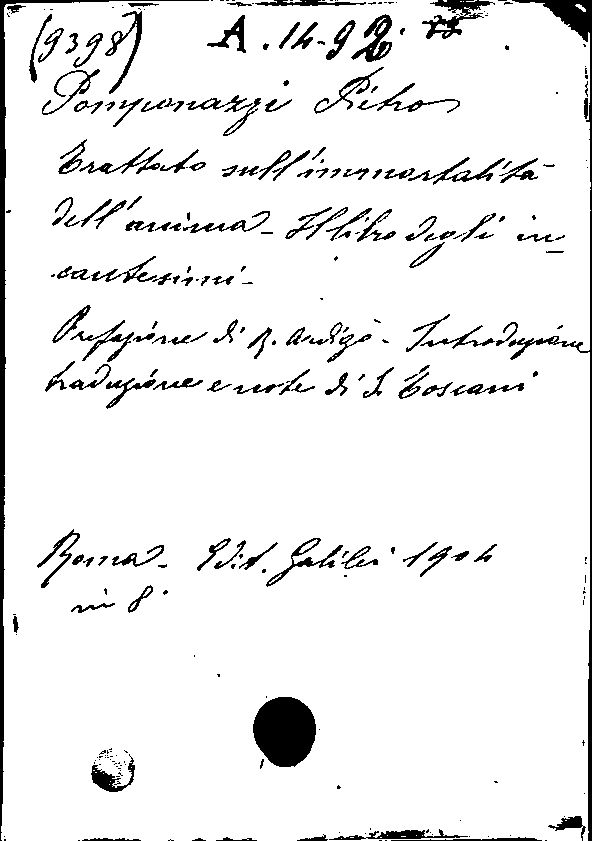 (9398) A. 14-92.
Pomponazzi Pietro
Trattato sull'immortalità
dell'anima - Il libro degli in
cantesimi -
Prefazione di R. Ardigò - Introduzione
traduzione e note di I. Toscani
Roma - Edit. Galilei 1904
in 8°